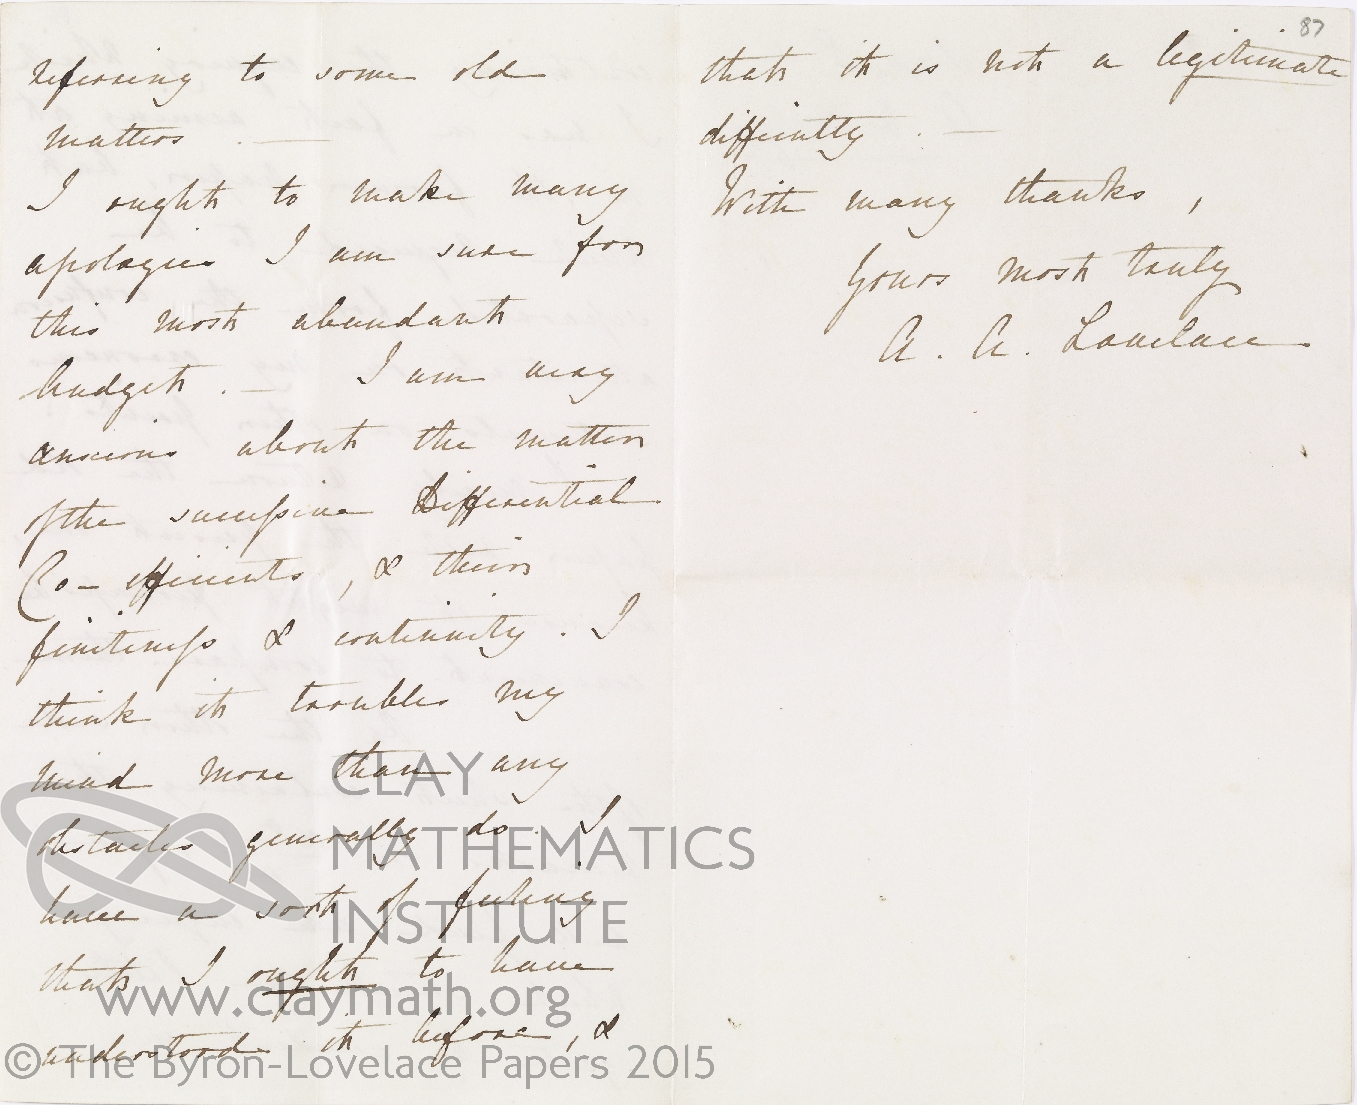 referring to some old
matters . —
I ought to make many
apologies I am sure for
this most abundant
budget . — I am very
anxious about the matter
of the successive Differential
Co-efficients, & their
finiteness & continuity. I
think it troubles my
mind more than any
obstacles generally do. I
have a sort of feeling
that I ought to have
understood it before, &
87
that it is not a legitimate
difficulty . —
With many thanks,
Yours most truly
A. A. Lovelace
CLAY
MATHEMATICS
INSTITUTE
www.claymath.org
© The Byron-Lovelace Papers 2015